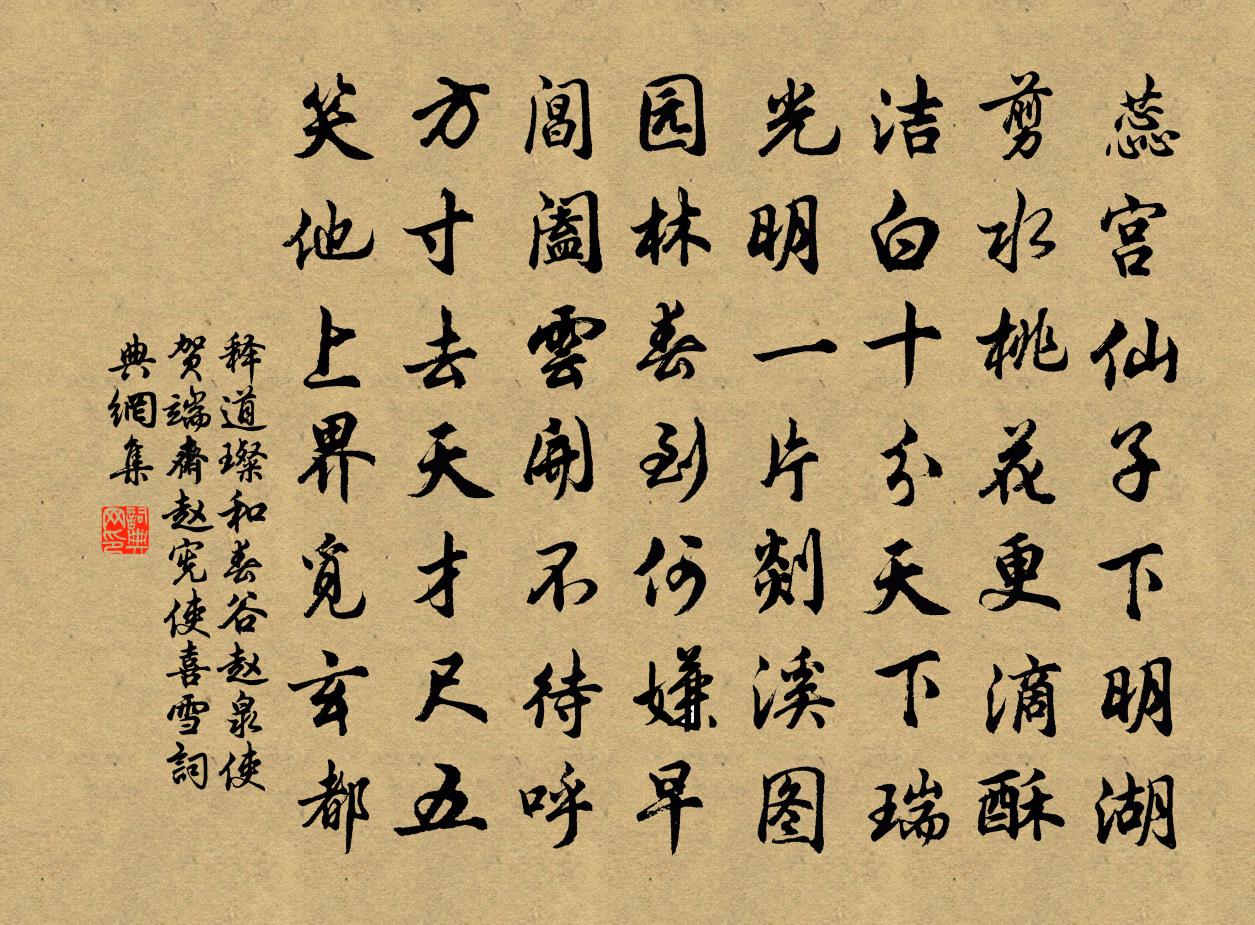 蕊宫仙子下明湖
剪水桃花更滴酥
洁白十分天下瑞
光明一片剡溪图
园林春到何嫌早
阊阖雲開不待呼
方寸去天才尺五
笑他上界覓玄都
释道璨和春谷赵泉使
贺端齋赵宪使喜雪詞
典網集
詞典网印